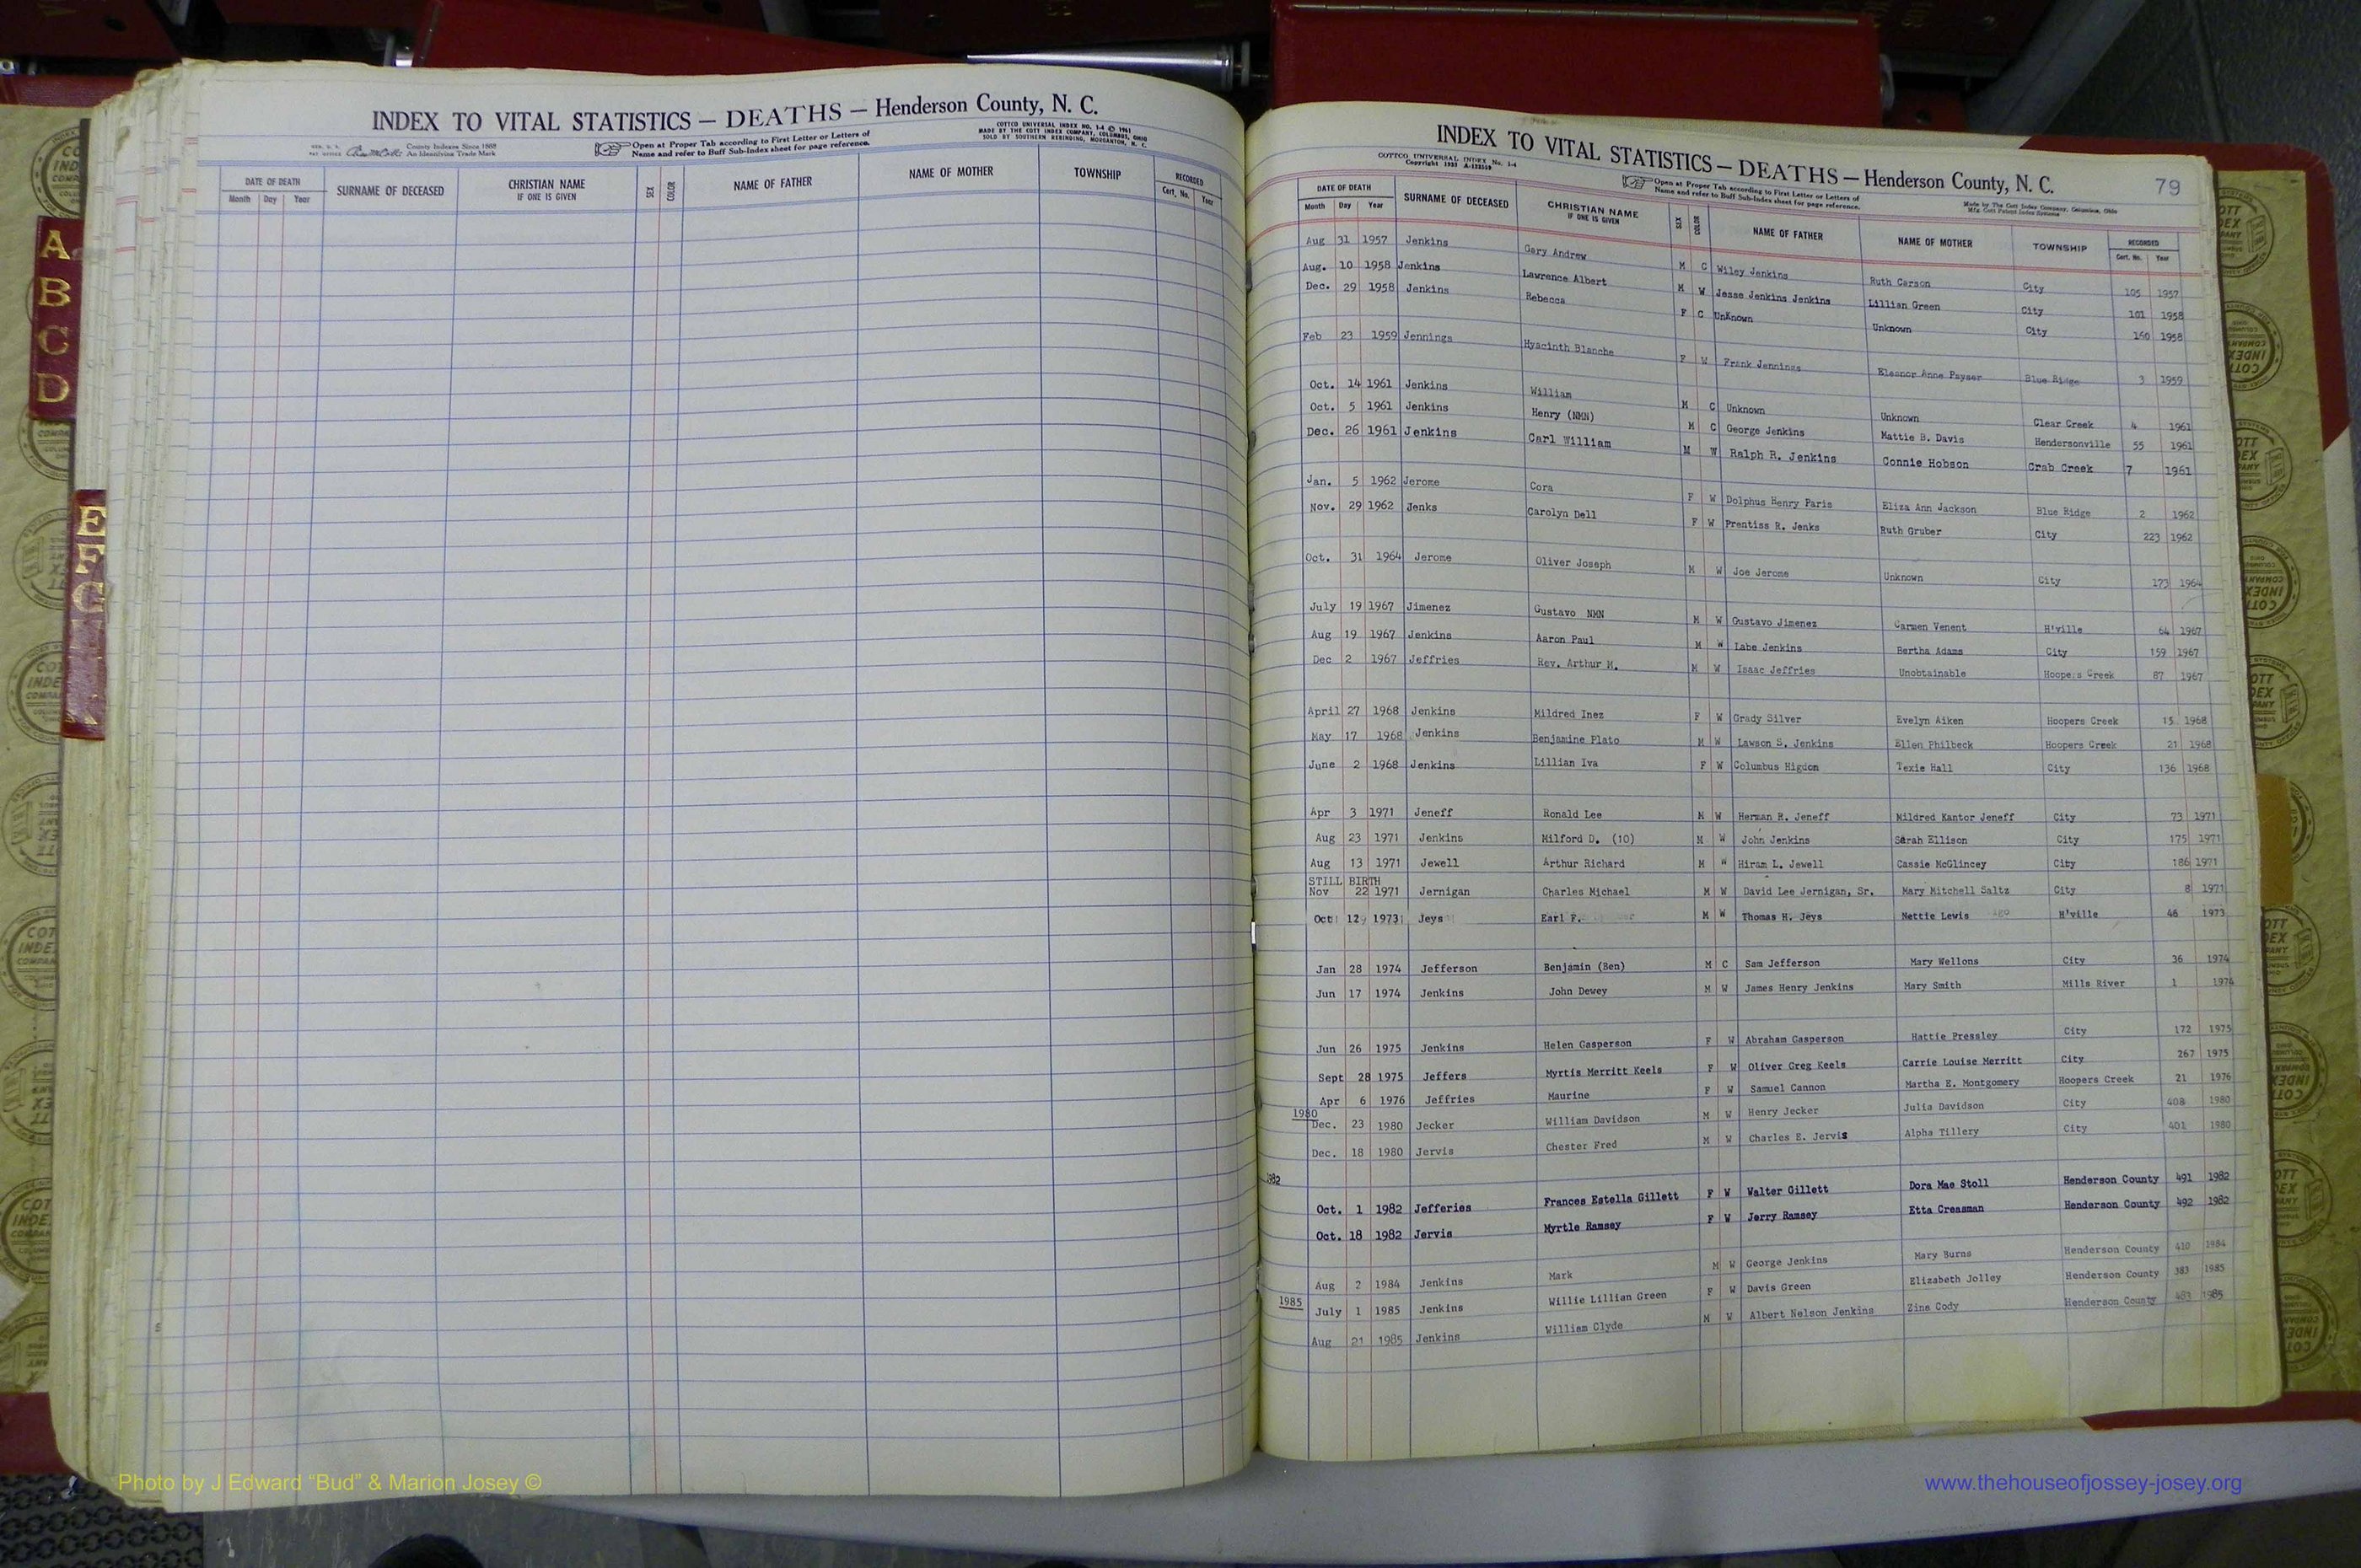 INDEX TO VITAL STATISTICS — DEATHS — Henderson County, N. C.
County Indexes Since 1888
An Identifying Trade Mark
Open at Proper Tab according to First Letter or Letters of
Name and refer to Buff Sub-Index sheet for page reference.
COTTCO UNIVERSAL INDEX NO. 1-4 © 1961
MADE BY THE COTT INDEX COMPANY, COLUMBUS, OHIO
SOLD BY SOUTHERN REBINDING, MORGANTON, N. C.
DATE OF DEATH SURNAME OF DECEASED CHRISTIAN NAME IF ONE IS GIVEN SEX COLOR NAME OF FATHER NAME OF MOTHER TOWNSHIP RECORDED
Month Day Year Cert. No. Year
A
B
C
D
E
F
G
INDEX TO VITAL STATISTICS — DEATHS — Henderson County, N. C. 79
COTTCO UNIVERSAL INDEX No. 1-4
Open at Proper Tab according to First Letter or Letters of
Name and refer to Buff Sub-Index sheet for page reference.
Made by The Cott Index Company, Columbus, Ohio
DATE OF DEATH SURNAME OF DECEASED CHRISTIAN NAME IF ONE IS GIVEN SEX COLOR NAME OF FATHER NAME OF MOTHER TOWNSHIP RECORDED
Month Day Year Cert. No. Year
Aug 31 1957 Jenkins Gary Andrew M C Wiley Jenkins Ruth Carson City 105 1957
Aug. 10 1958 Jenkins Lawrence Albert M W Jesse Jenkins Jenkins Lillian Green City 101 1958
Dec. 29 1958 Jenkins Rebecca F C UnKnown Unknown City 160 1958
Feb 23 1959 Jennings Hyacinth Blanche F W Frank Jennings Eleanor Anne Payser Blue Ridge 3 1959
Oct. 14 1961 Jenkins William M C Unknown Unknown Clear Creek 4 1961
Oct. 5 1961 Jenkins Henry (NMN) M C George Jenkins Mattie B. Davis Hendersonville 55 1961
Dec. 26 1961 Jenkins Carl William M W Ralph R. Jenkins Connie Hobson Crab Creek 7 1961
Jan. 5 1962 Jerome Cora F W Dolphus Henry Paris Eliza Ann Jackson Blue Ridge 2 1962
Nov. 29 1962 Jenks Carolyn Dell F W Prentiss R. Jenks Ruth Gruber City 223 1962
Oct. 31 1964 Jerome Oliver Joseph M W Joe Jerome Unknown City 173 1964
July 19 1967 Jimenez Gustavo NMN M W Gustavo Jimenez Carmen Venent H'ville 64 1967
Aug 19 1967 Jenkins Aaron Paul M W Labe Jenkins Bertha Adams City 159 1967
Dec 2 1967 Jeffries Rev. Arthur M. M W Isaac Jeffries Unobtainable Hoopers Creek 87 1967
April 27 1968 Jenkins Mildred Inez F W Grady Silver Evelyn Aiken Hoopers Creek 15 1968
May 17 1968 Jenkins Benjamine Plato M W Lawson S. Jenkins Ellen Philbeck Hoopers Creek 21 1968
June 2 1968 Jenkins Lillian Iva F W Columbus Higdon Texie Hall City 136 1968
Apr 3 1971 Jeneff Ronald Lee M W Herman R. Jeneff Mildred Kantor Jeneff City 73 1971
Aug 23 1971 Jenkins Milford D. (10) M W John Jenkins Sarah Ellison City 175 1971
Aug 13 1971 Jewell Arthur Richard M W Hiram L. Jewell Cassie McGlincey City 186 1971
STILL BIRTH
Nov 22 1971 Jernigan Charles Michael M W David Lee Jernigan, Sr. Mary Mitchell Saltz City 8 1971
Oct 12 1973 Jeys Earl F. M W Thomas H. Jeys Nettie Lewis H'ville 46 1973
Jan 28 1974 Jefferson Benjamin (Ben) M C Sam Jefferson Mary Wellons City 36 1974
Jun 17 1974 Jenkins John Dewey M W James Henry Jenkins Mary Smith Mills River 1 1974
Jun 26 1975 Jenkins Helen Gasperson F W Abraham Gasperson Hattie Pressley City 172 1975
Sept 28 1975 Jeffers Myrtis Merritt Keels F W Oliver Greg Keels Carrie Louise Merritt City 267 1975
Apr 6 1976 Jeffries Maurine F W Samuel Cannon Martha E. Montgomery Hoopers Creek 21 1976
1980
Dec. 23 1980 Jecker William Davidson M W Henry Jecker Julia Davidson City 408 1980
Dec. 18 1980 Jervis Chester Fred M W Charles E. Jervis Alpha Tillery City 401 1980
1982
Oct. 1 1982 Jefferies Frances Estella Gillett F W Walter Gillett Dora Mae Stoll Henderson County 491 1982
Oct. 18 1982 Jervis Myrtle Ramsey F W Jerry Ramsey Etta Creasman Henderson County 492 1982
Aug 2 1984 Jenkins Mark M W George Jenkins Mary Burns Henderson County 410 1984
1985
July 1 1985 Jenkins Willie Lillian Green F W Davis Green Elizabeth Jolley Henderson County 383 1985
Aug 21 1985 Jenkins William Clyde M W Albert Nelson Jenkins Zina Cody Henderson County 483 1985
Photo by J Edward “Bud” & Marion Josey ©
www.thehouseofjossey-josey.org